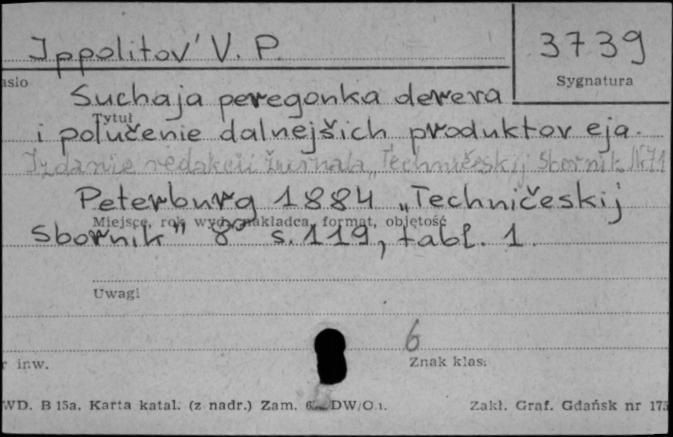 Ippolitov' V. P.
3739
asło
Sygnatura
Suchaja peregonka dereva
Tytuł
i polučenie dalnejšich produktov eja.
Izdanie redakcii žurnala „Techničeskij Sbornik" N71
Peterburg 1884 „Techničeskij
Miejsce, rok wyd., nakładca, format, objętość
Sbornik" 8° s. 119, tabl. 1.
Uwagi
6
r inw.
Znak klas.
WD. B 15a. Karta katal. (z nadr.) Zam. DW/O.
Zakł. Graf. Gdańsk nr 173